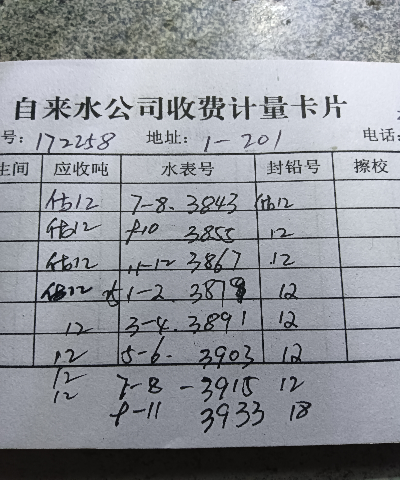 自来水公司收费计量卡片
号: 172258 地址: 1-201 电话:
生间 应收吨 水表号 封铅号 擦校
估12 7-8. 3843 估12
估12 9-10 3855 12
估12 11-12 3867 12
估12 1-2. 3879 12
12 3-4. 3891 12
12 5-6. 3903 12
12 7-8 - 3915 12
12 9-11 3933 18